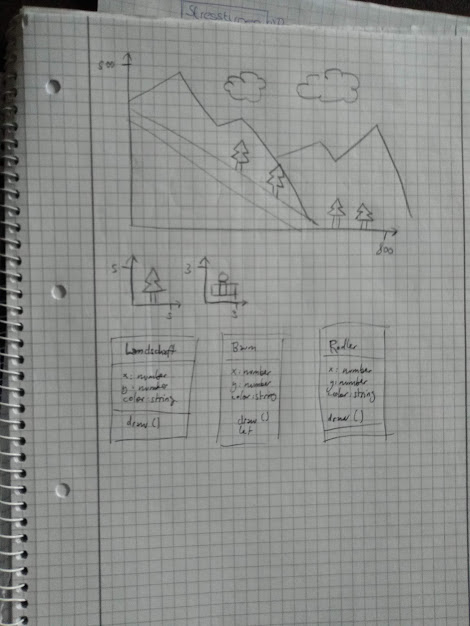 800
800
5
5
3
3
Landschaft
x: number
y: number
color: string
draw()
Baum
x: number
y: number
color: string
draw()
Radler
x: number
y: number
color: string
draw()